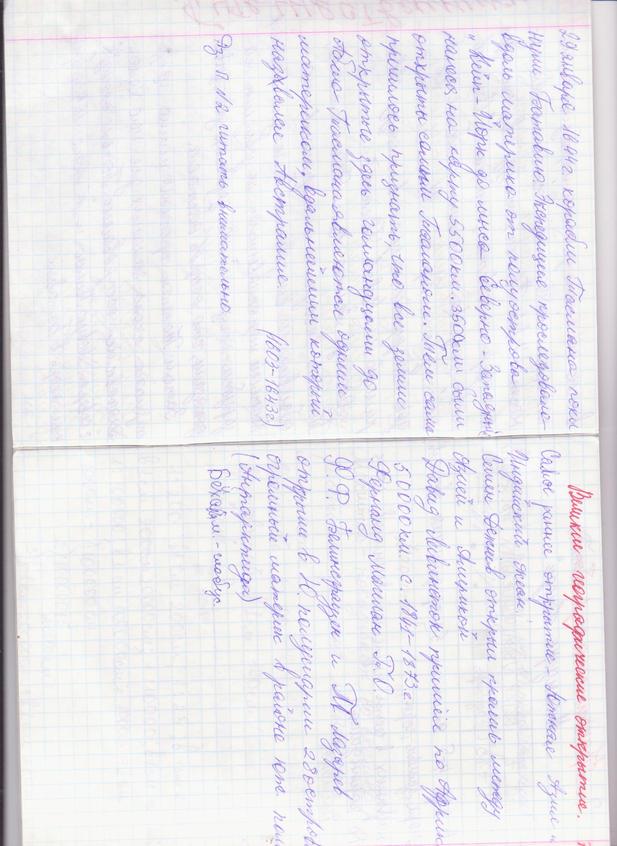 29 января 1644 г. корабли Тасмана поки
нули Батавию. Экспедиция проследовала
вдоль материка от полуострова
Кейп-Йорк до мыса Северно-Западный
нанеся на карту 5500 км. 3600 км были
открыты самим Тасманом. Тем самы
пришлось признать, что все земли
открытые здесь голландцами до
Абела Тасмана являются одним
материком, в дальнейшем который
назвали Австралие. (1603-1643г)
Дз. П. 12 читать внимательно
Великие географические открытие.
Самое раннее открытие - Южная Азия и
Индийский океан.
Семен Дежнев открыл пролив между
Азией и Америкой
Давид Ливингсток прошёл по Африк
50000 км с. 1841-1873 г.
Фернанд Магеллан Т.О.
Ф.Ф. Беллинсгаузен и М.П. Лазарев
открыли в Ю. полушарии 28 остров
огромный материк в районе юж. пол
(Антарктида)
Бехайм - глобус